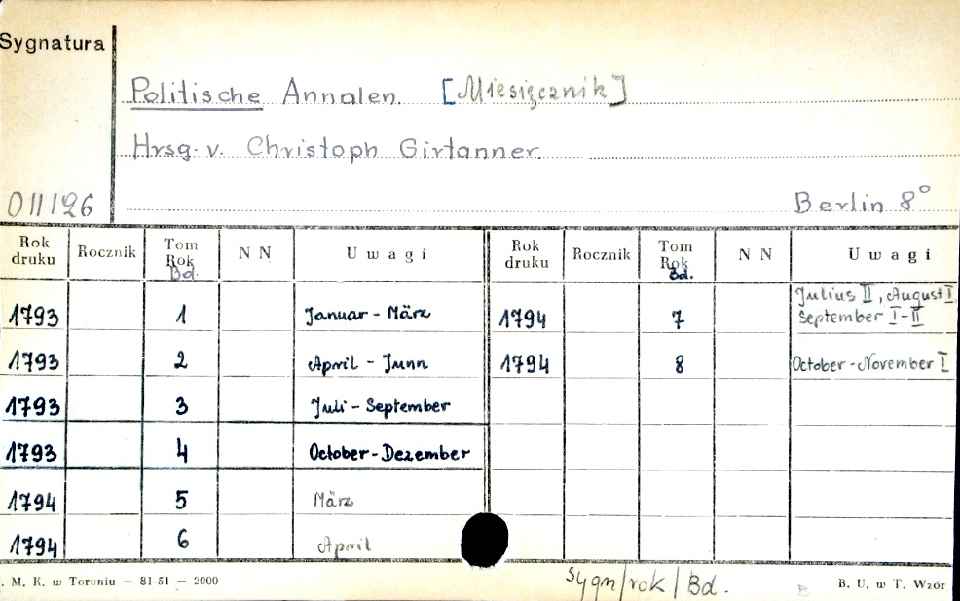 Sygnatura
Politische Annalen. [Miesięcznik]
Hrsg. v. Christoph Girtanner.
011126 Berlin 8°
Rok druku Rocznik Tom Rok Bd. N N Uwagi Rok druku Rocznik Tom Rok Bd. N N Uwagi
1793 1 Januar - März 1794 7 Julius II, August I, September I-II
1793 2 April - Junn 1794 8 October - November I
1793 3 Juli - September
1793 4 October - Dezember
1794 5 März
1794 6 April
. M. K. w Toruniu — 81-51 — 2000 Sygn/rok/Bd. B. U. w T. Wzór